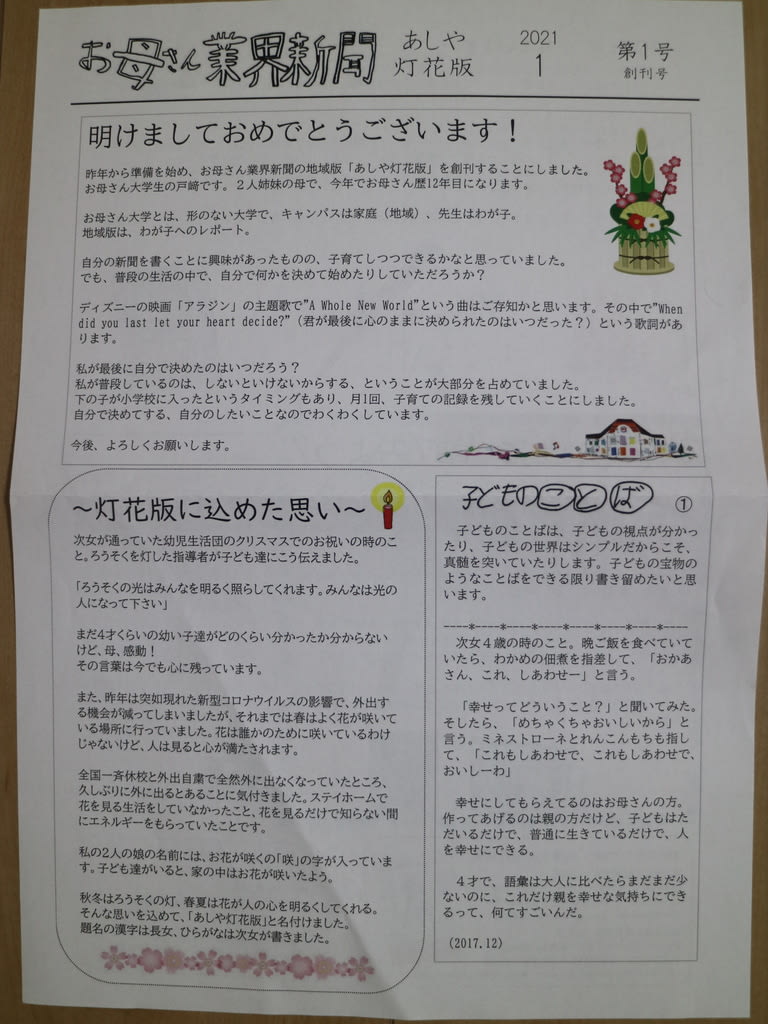 お母さん業界新聞
あしや
灯花版
2021
1
第1号
創刊号
明けましておめでとうございます！
昨年から準備を始め、お母さん業界新聞の地域版「あしや灯花版」を創刊することにしました。
お母さん大学生の戸﨑です。２人姉妹の母で、今年でお母さん歴12年目になります。
お母さん大学とは、形のない大学で、キャンパスは家庭（地域）、先生はわが子。
地域版は、わが子へのレポート。
自分の新聞を書くことに興味があったものの、子育てしつつできるかなと思っていました。
でも、普段の生活の中で、自分で何かを決めて始めたりしていただろうか？
ディズニーの映画「アラジン」の主題歌で”A Whole New World”という曲はご存知かと思います。その中で”When
did you last let your heart decide?”（君が最後に心のままに決められたのはいつだった？）という歌詞があ
ります。
私が最後に自分で決めたのはいつだろう？
私が普段しているのは、しないといけないからする、ということが大部分を占めていました。
下の子が小学校に入ったというタイミングもあり、月1回、子育ての記録を残していくことにしました。
自分で決めてする、自分のしたいことなのでわくわくしています。
今後、よろしくお願いします。
～灯花版に込めた思い～
次女が通っていた幼児生活団のクリスマスでのお祝いの時のこ
と。ろうそくを灯した指導者が子ども達にこう伝えました。
「ろうそくの光はみんなを明るく照らしてくれます。みんなは光の
人になって下さい」
まだ4才くらいの幼い子達がどのくらい分かったか分からない
けど、母、感動！
その言葉は今でも心に残っています。
また、昨年は突如現れた新型コロナウイルスの影響で、外出す
る機会が減ってしまいましたが、それまでは春はよく花が咲いて
いる場所に行っていました。花は誰かのために咲いているわけ
じゃないけど、人は見ると心が満たされます。
全国一斉休校と外出自粛で全然外に出なくなっていたところ、
久しぶりに外に出るとあることに気付きました。ステイホームで
花を見る生活をしていなかったこと、花を見るだけで知らない間
にエネルギーをもらっていたことです。
私の2人の娘の名前には、お花が咲くの「咲」の字が入っていま
す。子ども達がいると、家の中はお花が咲いたよう。
秋冬はろうそくの灯、春夏は花が人の心を明るくしてくれる。
そんな思いを込めて、「あしや灯花版」と名付けました。
題名の漢字は長女、ひらがなは次女が書きました。
子どものことば ①
子どものことばは、子どもの視点が分かっ
たり、子どもの世界はシンプルだからこそ、
真髄を突いていたりします。子どもの宝物の
ようなことばをできる限り書き留めたいと思
います。
----*----*----*----*----*----*----*----
次女４歳の時のこと。晩ご飯を食べていて
いたら、わかめの佃煮を指差して、「おかあ
さん、これ、しあわせー」と言う。
「幸せってどういうこと？」と聞いてみた。
そしたら、「めちゃくちゃおいしいから」と
言う。ミネストローネとれんこんもちも指し
て、「これもしあわせで、これもしあわせで、
おいしーわ」
幸せにしてもらえてるのはお母さんの方。
作ってあげるのは親の方だけど、子どもはた
だいるだけで、普通に生きているだけで、人
を幸せにできる。
４才で、語彙は大人に比べたらまだまだ少
ないのに、これだけ親を幸せな気持ちにでき
るって、何てすごいんだ。
（2017.12）